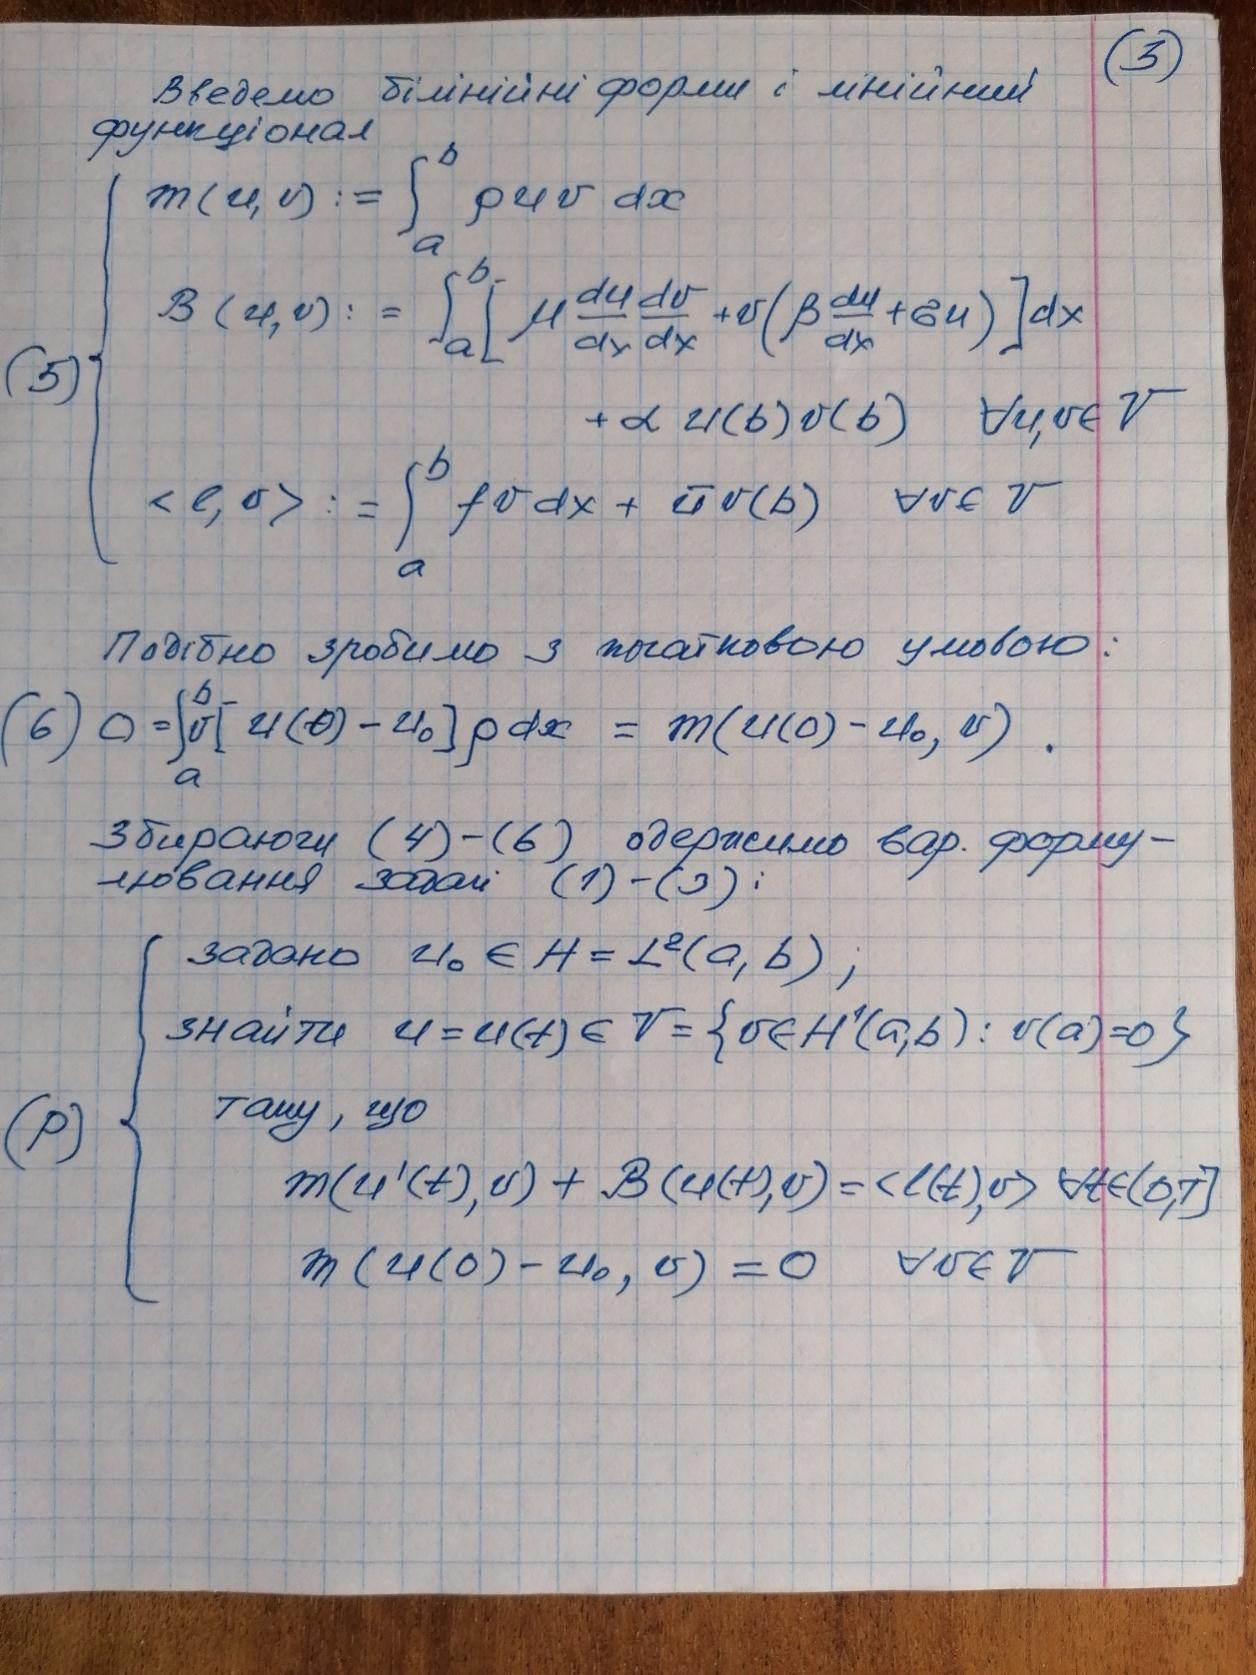 (3)
Введемо білінійні форми і лінійний
функціонал
m(u,v) := ∫_a^b ρuv dx
B(u,v) := ∫_a^b [μ du/dx dv/dx + v(β du/dx + σu)]dx
(5)
+ α u(b)v(b) ∀u,v∈V
<l,v> := ∫_a^b fv dx + ū v(b) ∀v∈V
Подібно зробимо з початковою умовою:
(6) 0 = ∫_a^b v[u(0) - u₀]ρdx = m(u(0) - u₀, v).
Збираючи (4)-(6) одержимо вар. форму-
лювання задачі (1)-(3):
задано u₀ ∈ H = L²(a,b);
знайти u = u(t) ∈ V = {v∈H¹(a,b): v(a)=0}
(P)
таку, що
m(u'(t),v) + B(u(t),v) = <l(t),v> ∀t∈(0,T]
m(u(0) - u₀, v) = 0 ∀v∈V